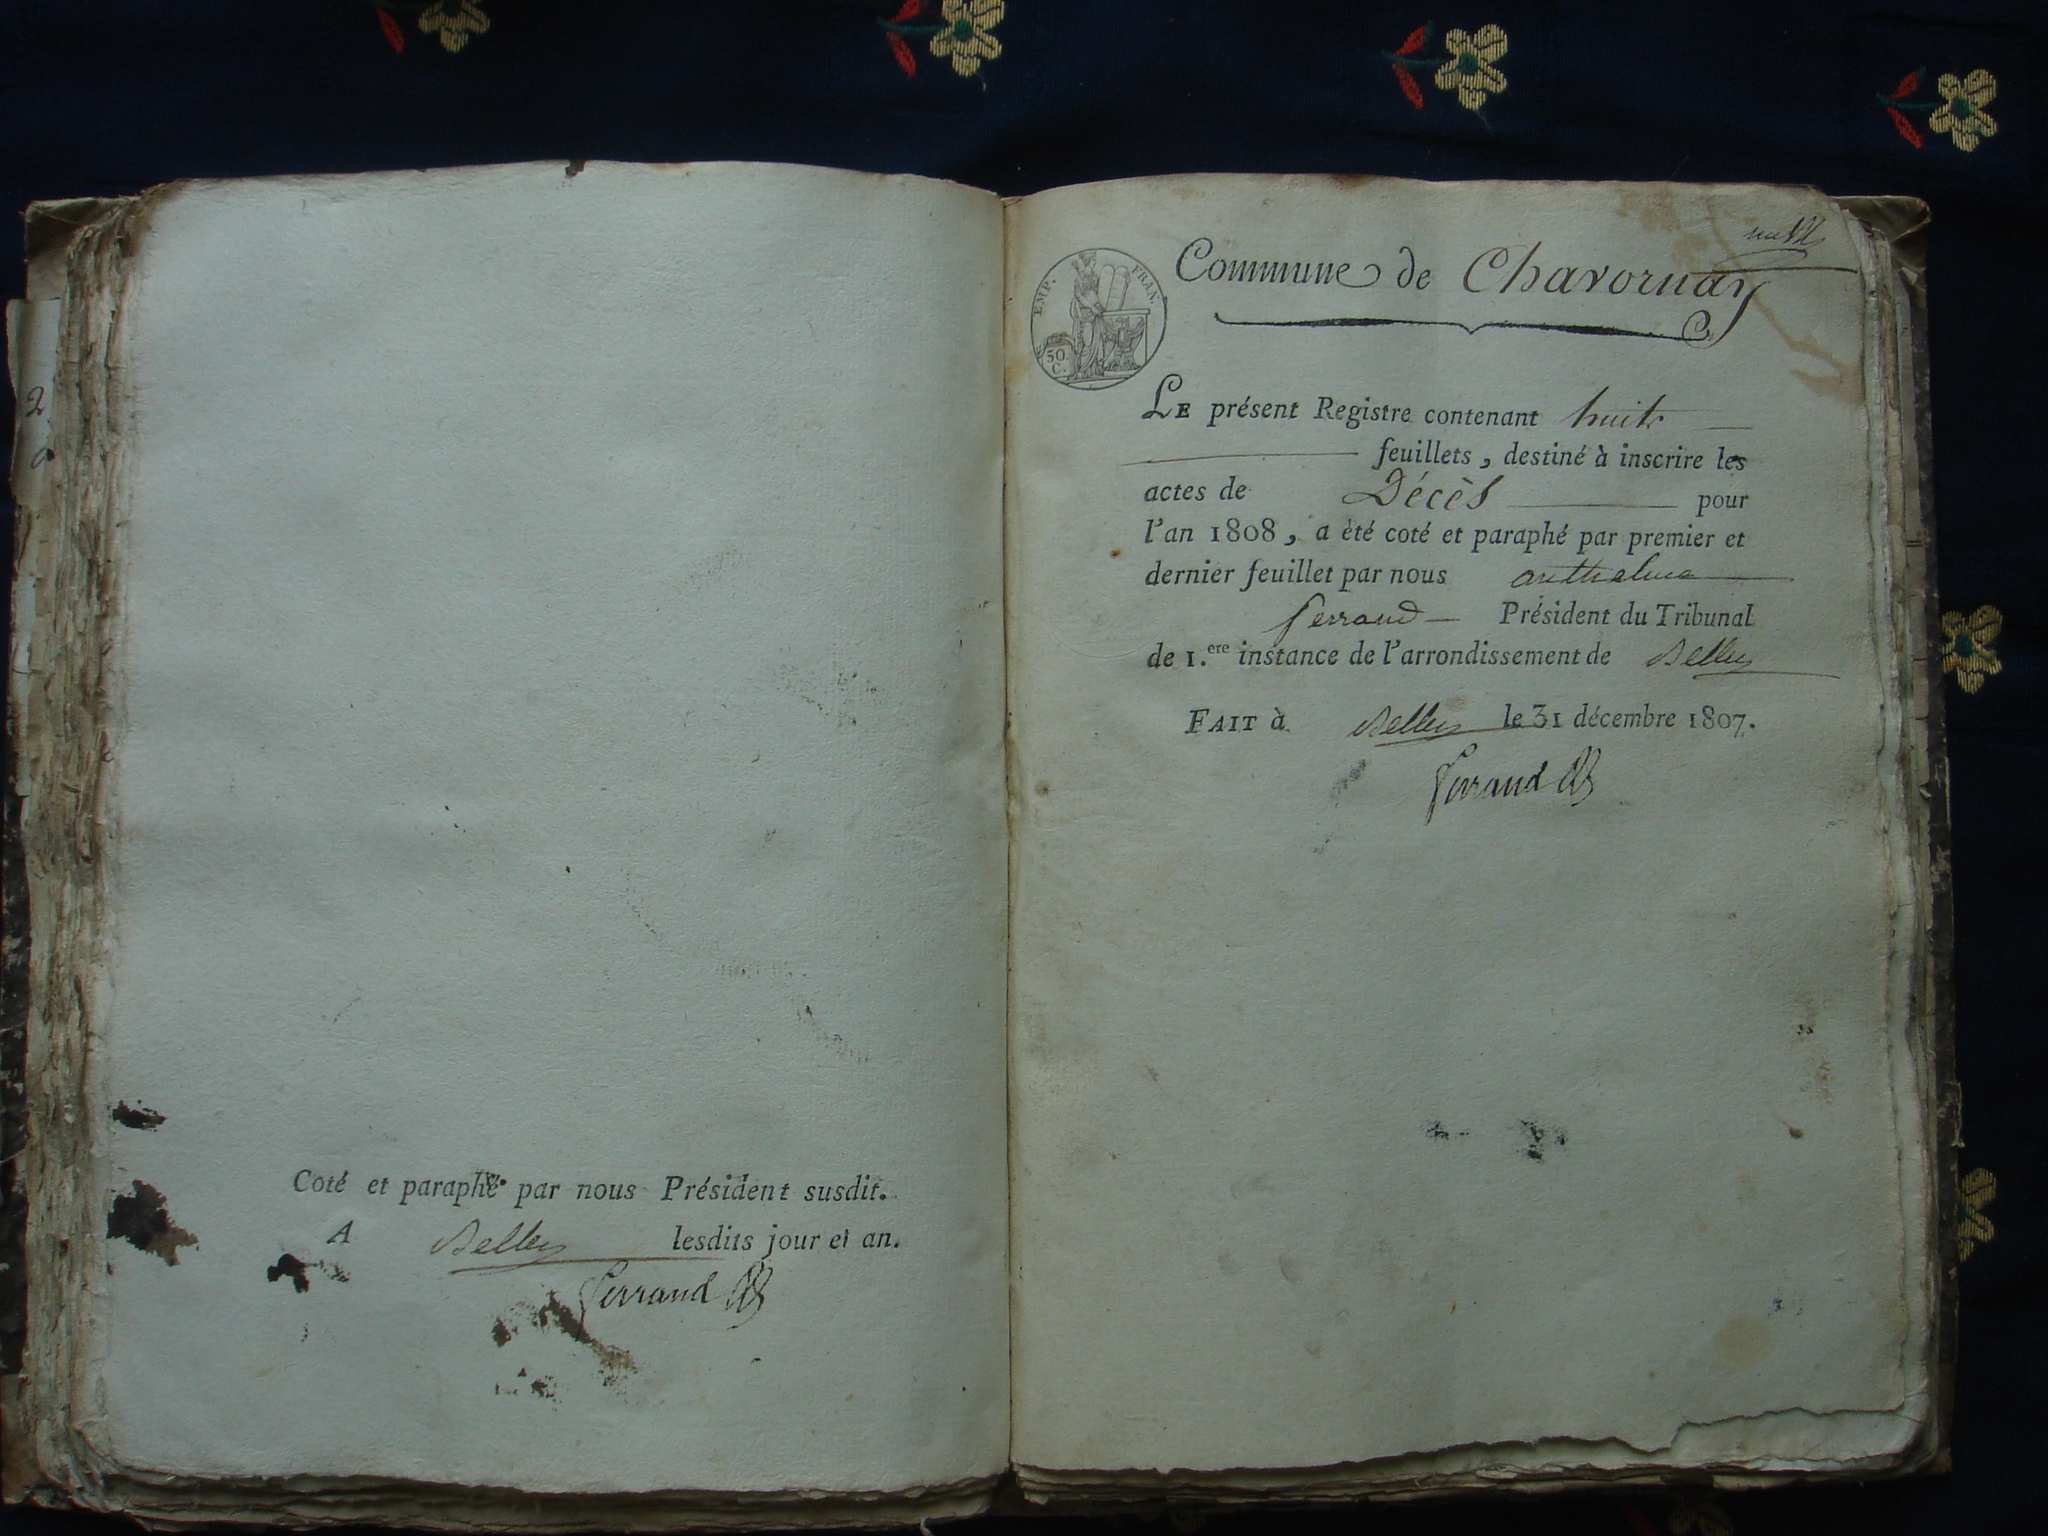 Coté et paraphé par nous Président susdit.
A Belley lesdits jour et an.
Ferrand
EMP. FRAN.
50.
C.
Commune de Chavornay
LE présent Registre contenant huit
feuillets, destiné à inscrire les
actes de Décès pour
l'an 1808, a été coté et paraphé par premier et
dernier feuillet par nous anthelme
ferrand Président du Tribunal
de 1.ere instance de l'arrondissement de Belley
FAIT à Belley le 31 décembre 1807.
Ferrand